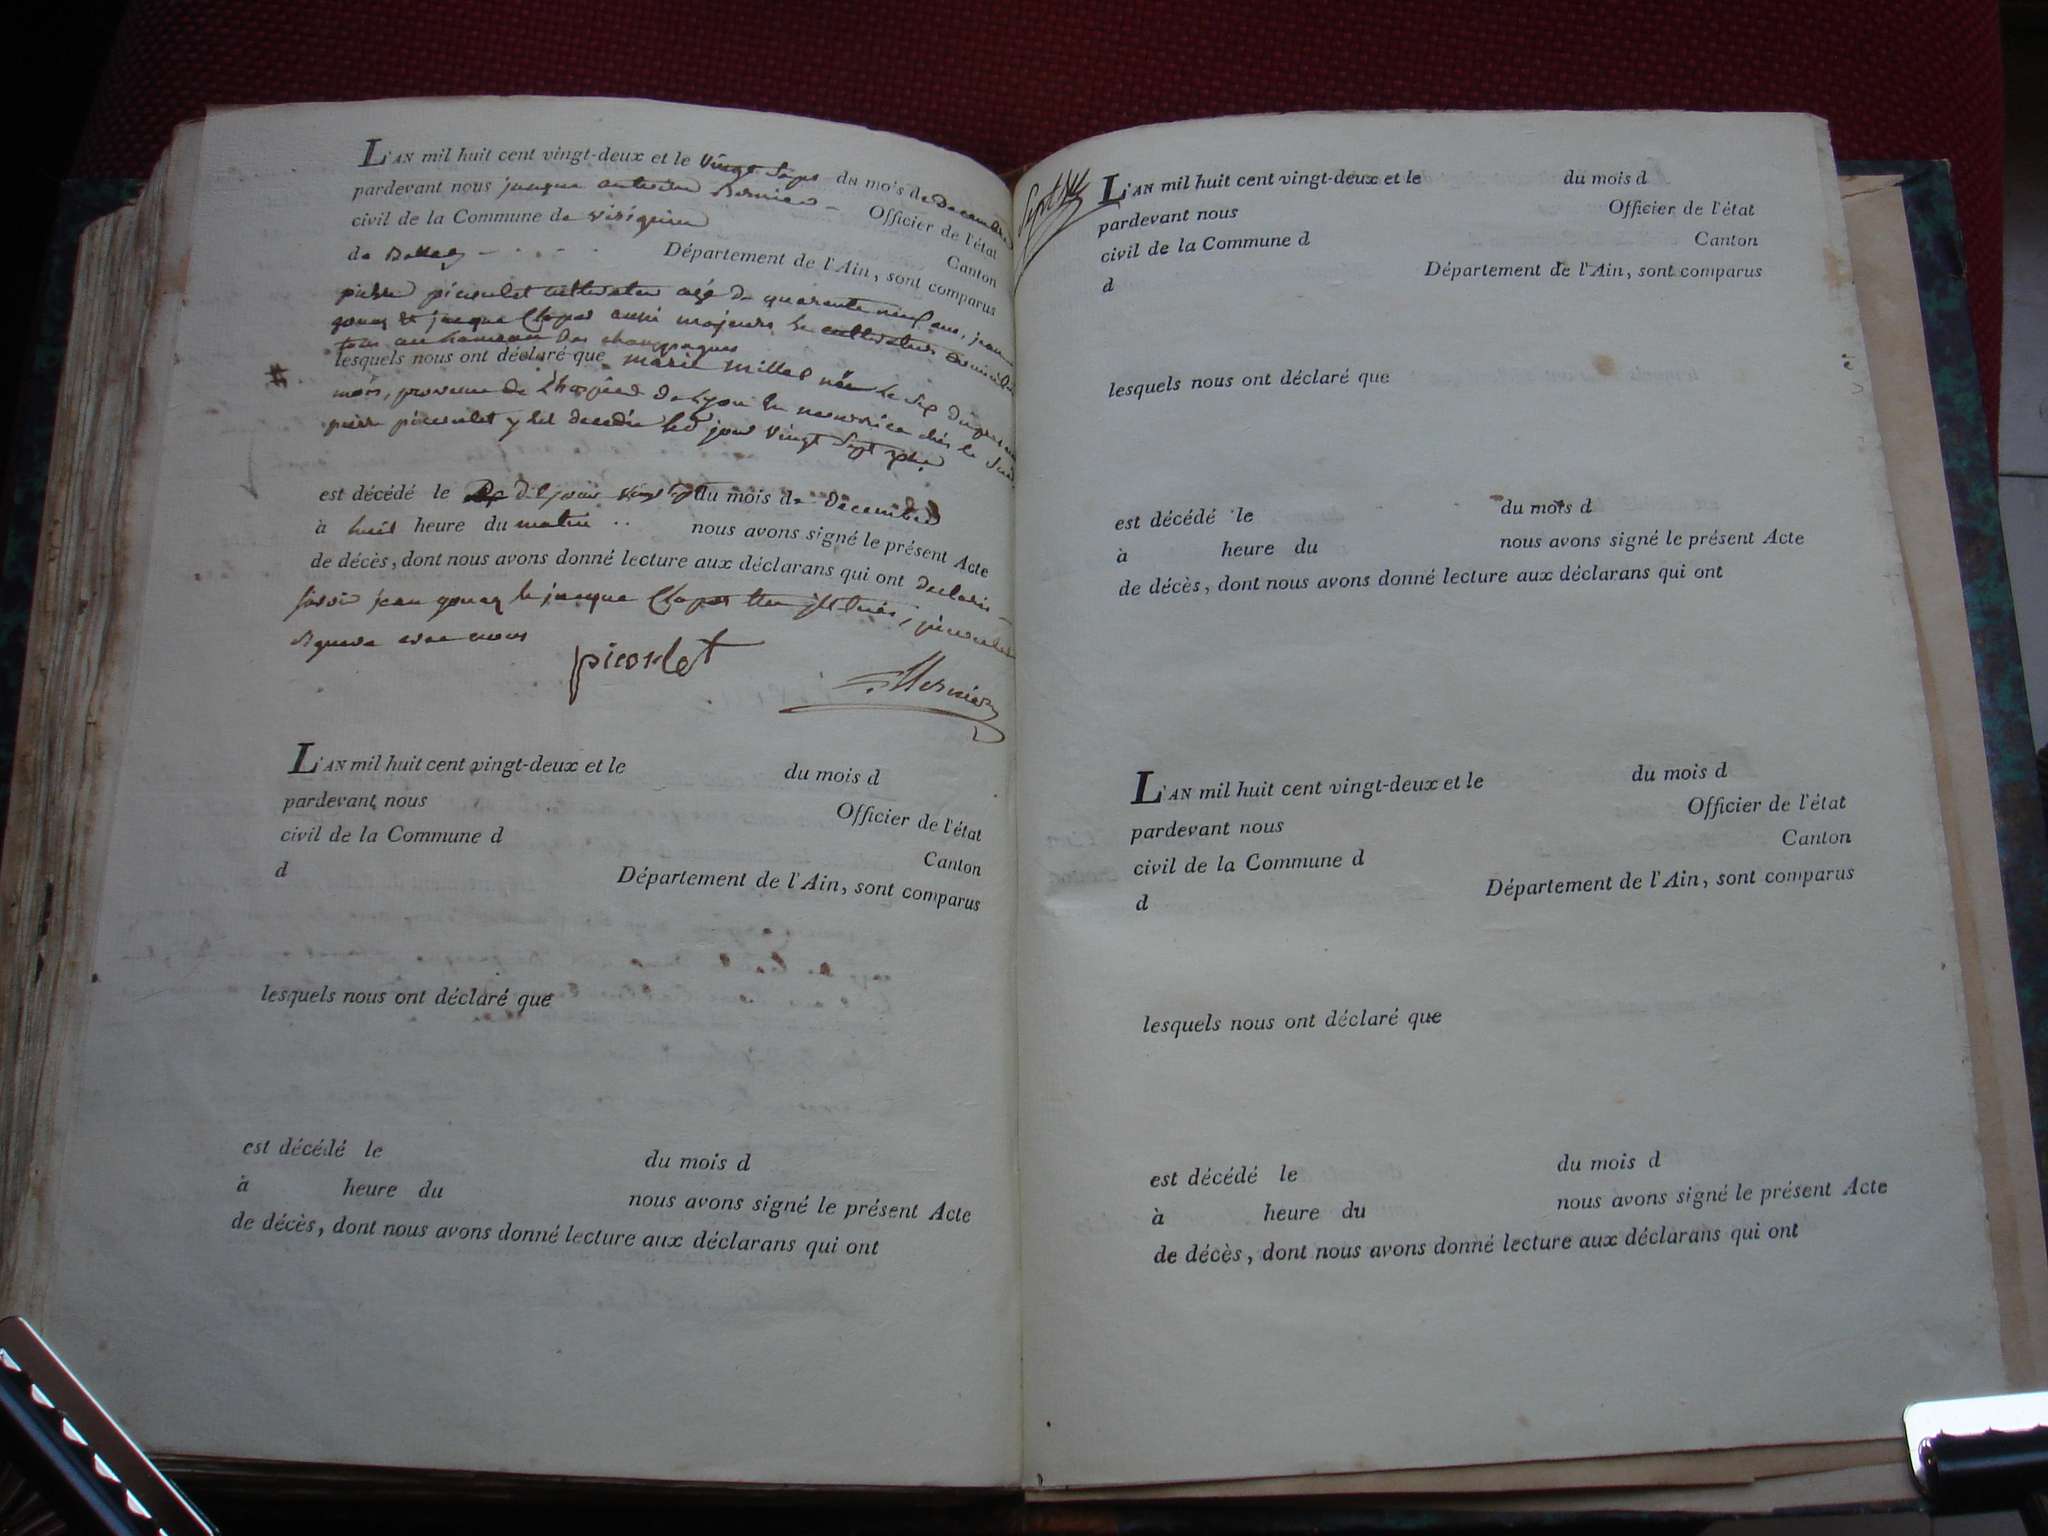 L'AN mil huit cent vingt-deux et le vingt sept du mois de decembre
pardevant nous jacque Bernier Officier de l'état
civil de la Commune de virignin Canton
de Belley Département de l'Ain, sont comparus
pierre picoulet cultivateur agé de quarante neuf ans, jean
gonay et jacque aussi majeurs cultivateurs
tous au hameau des champagnes
lesquels nous ont déclaré que marie millet née le six du present
mois, provenue de Lyon en nourrice chés le
pierre picoulet y est decedée jour vingt sept
est décédé le du mois de decembre
à huit heure du matin nous avons signé le présent Acte
de décès, dont nous avons donné lecture aux déclarans qui ont declaré
jean gonay et jacque picoulet
signera avec nous
picoulet
Bernier
L'AN mil huit cent vingt-deux et le du mois d
pardevant nous Officier de l'état
civil de la Commune d Canton
d Département de l'Ain, sont comparus
lesquels nous ont déclaré que
est décédé le du mois d
à heure du nous avons signé le présent Acte
de décès, dont nous avons donné lecture aux déclarans qui ont
L'AN mil huit cent vingt-deux et le du mois d
pardevant nous Officier de l'état
civil de la Commune d Canton
d Département de l'Ain, sont comparus
lesquels nous ont déclaré que
est décédé le du mois d
à heure du nous avons signé le présent Acte
de décès, dont nous avons donné lecture aux déclarans qui ont
L'AN mil huit cent vingt-deux et le du mois d
pardevant nous Officier de l'état
civil de la Commune d Canton
d Département de l'Ain, sont comparus
lesquels nous ont déclaré que
est décédé le du mois d
à heure du nous avons signé le présent Acte
de décès, dont nous avons donné lecture aux déclarans qui ont